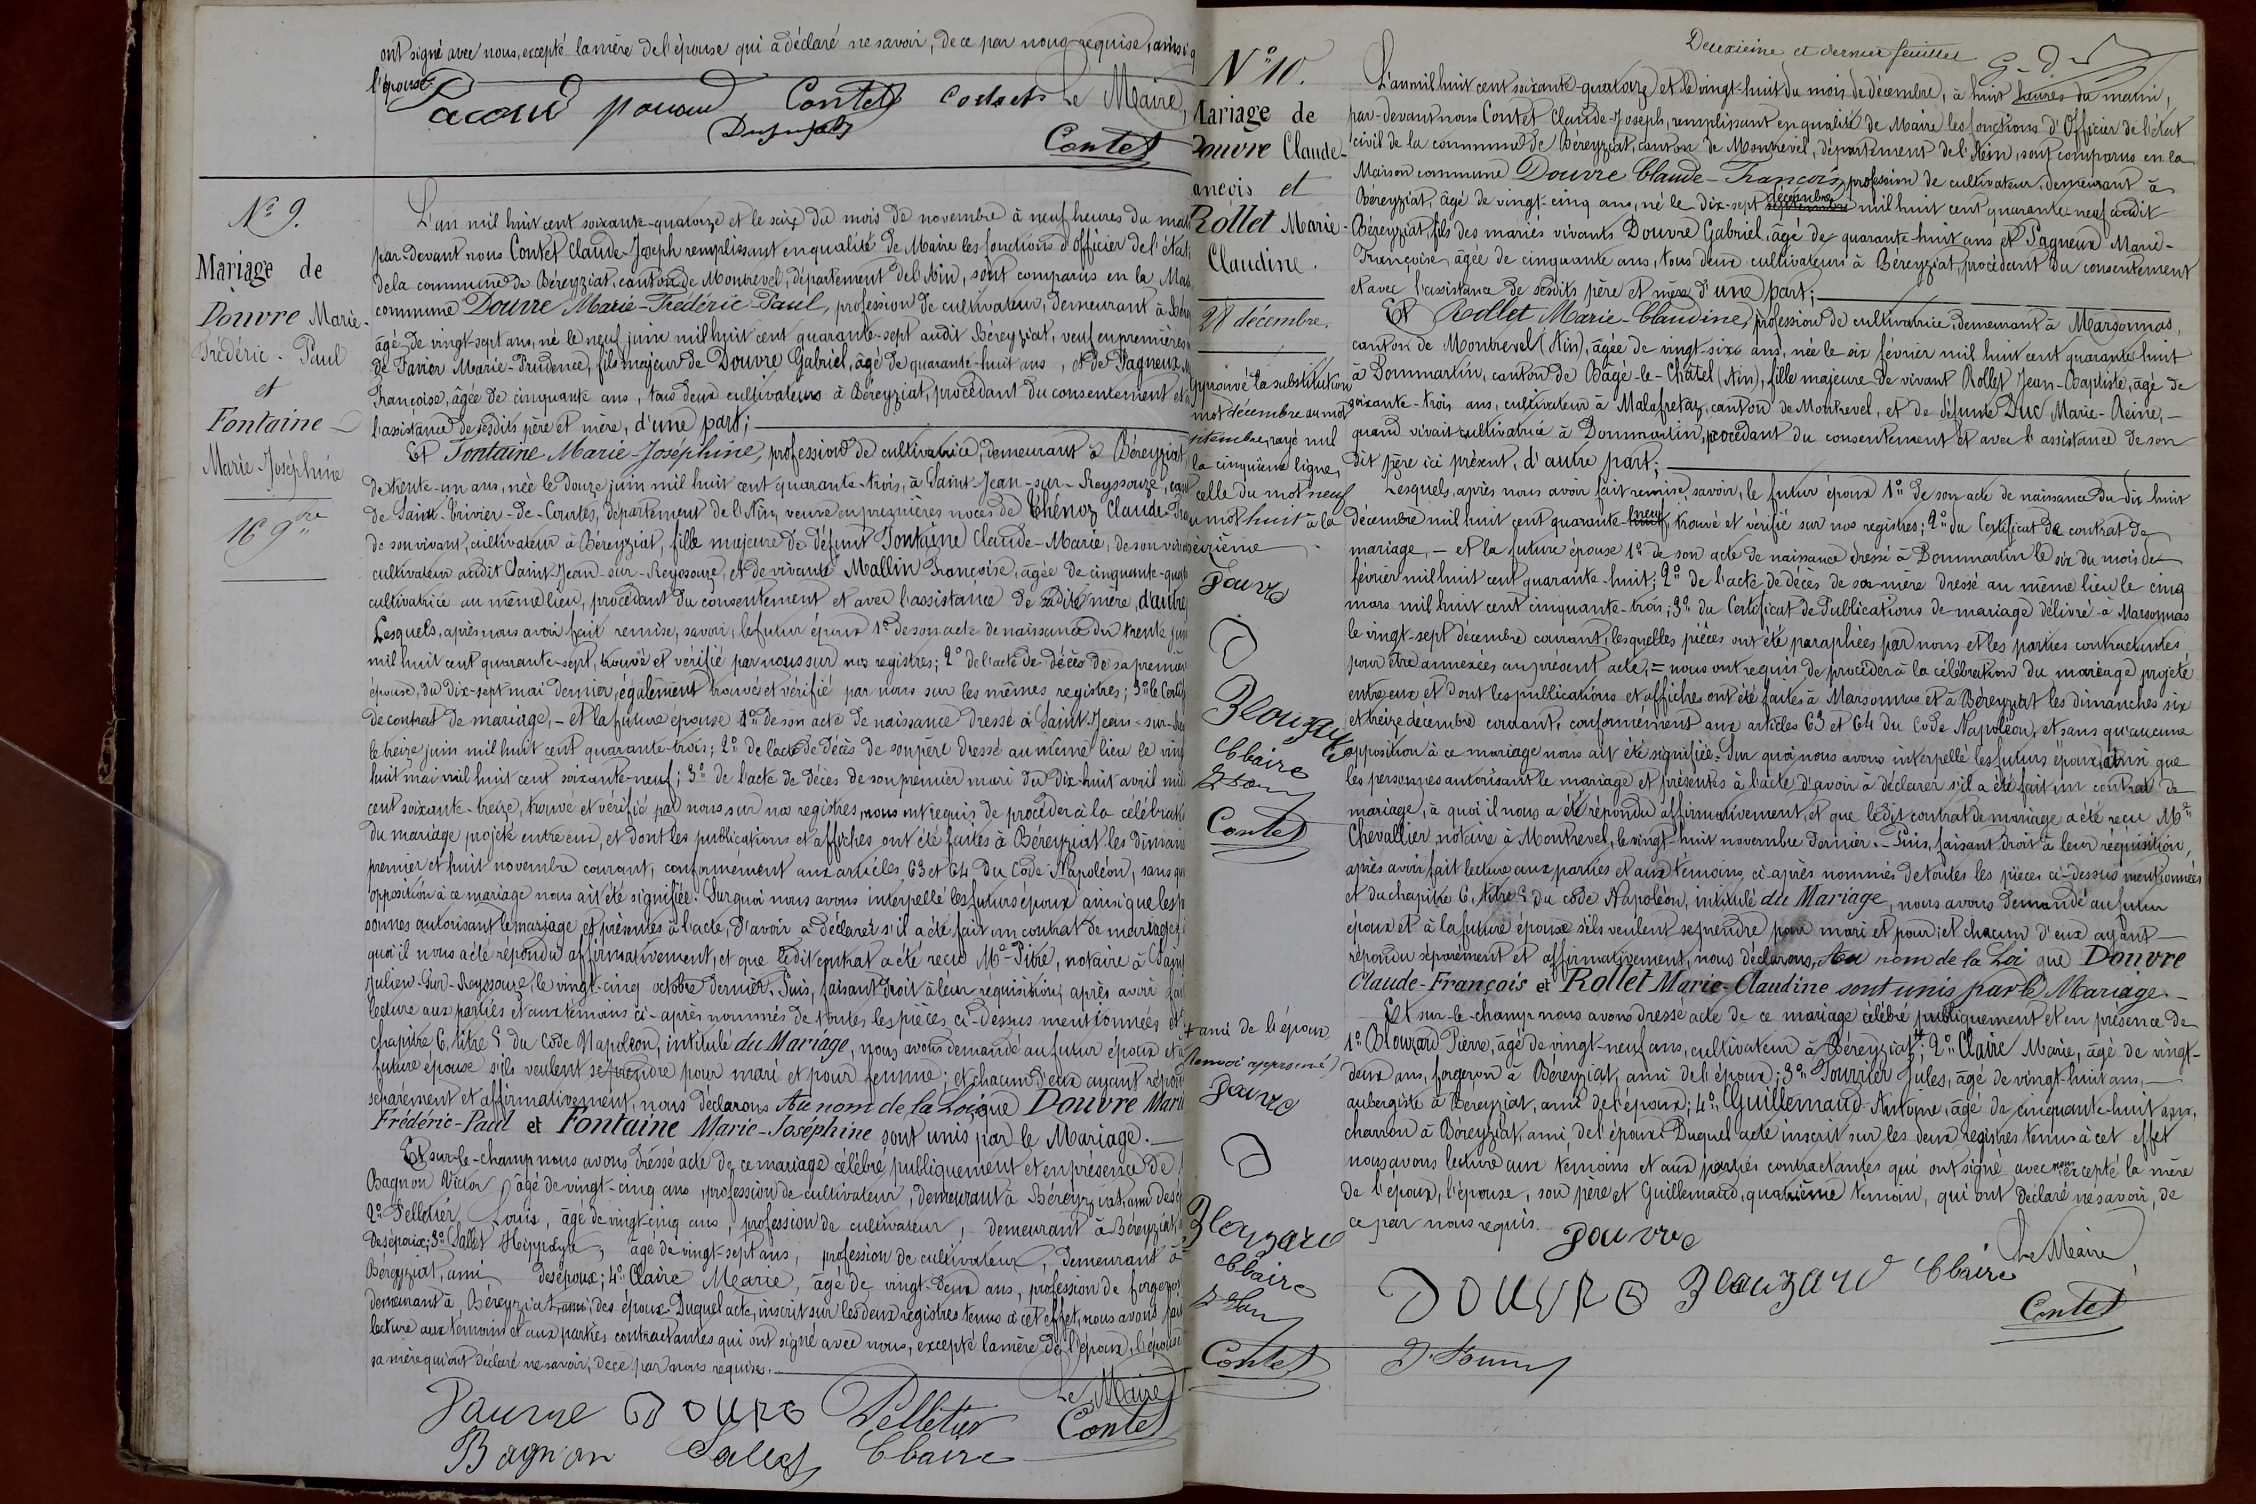 ont signé avec nous, excepté la mère de l'épouse qui a déclaré ne savoir, de ce par nous requise, ainsi q
l'épouse.
Contet Le Maire,
Contet
N° 9.
Mariage de
Douvre Marie-
Frédéric-Paul
et
Fontaine
Marie-Joséphine
16 9bre
L'an mil huit cent soixante-quatorze et le seize du mois de novembre à neuf heures du mat
par devant nous Contet Claude-Joseph remplissant en qualité de Maire les fonctions d'officier de l'état
de la commune de Béreyziat, canton de Montrevel, département de l'Ain, sont comparus en la Mai
commune Douvre Marie-Frédéric-Paul, profession de cultivateur, demeurant à Bérey
âgé de vingt-sept ans, né le neuf juin mil huit cent quarante-sept audit Béreyziat, veuf en premières
de Favier Marie-Prudence, fils majeur de Douvre Gabriel, âgé de quarante-huit ans, et de Pagneux M
Françoise, âgée de cinquante ans, tous deux cultivateurs à Béreyziat, procédant du consentement et a
l'assistance de sesdits père et mère, d'une part;
Et Fontaine Marie-Joséphine, profession de cultivatrice, demeurant à Béreyziat,
de trente-un ans, née le douze juin mil huit cent quarante-trois, à Saint-Jean-sur-Reyssouze, can
de Saint-Trivier-de-Courtes, département de l'Ain, veuve en premières noces de Thénoz Claude-
de son vivant, cultivateur à Béreyziat, fille majeure de défunt Fontaine Claude-Marie, de son viva
cultivateur audit Saint-Jean-sur-Reyssouze, et de vivante Mallin Françoise, âgée de cinquante-quat
cultivatrice au même lieu, procédant du consentement et avec l'assistance de sadite mère, d'autre
Lesquels, après nous avoir fait remise, savoir, le futur époux 1° de son acte de naissance du trente jui
mil huit cent quarante-sept, trouvé et vérifié par nous sur nos registres; 2° de l'acte de décès de sa premièr
épouse, du dix-sept mai dernier, également trouvé et vérifié par nous sur les mêmes registres; 3° le Certif
de contrat de mariage, - et la future épouse 1° de son acte de naissance dressé à Saint-Jean-sur-Rey
le treize juin mil huit cent quarante-trois; 2° de l'acte de décès de son père dressé au même lieu le ving
huit mai mil huit cent soixante-neuf; 3° de l'acte de décès de son premier mari du dix-huit avril mil
cent soixante-treize, trouvé et vérifié par nous sur nos registres, nous ont requis de procéder à la célébrati
du mariage projeté entre eux, et dont les publications et affiches ont été faites à Béreyziat les diman
premier et huit novembre courant, conformément aux articles 63 et 64 du Code Napoléon, sans qu
opposition à ce mariage nous ait été signifiée. Sur quoi nous avons interpellé les futurs époux ainsi que les p
sonnes autorisant le mariage et présentes à l'acte, d'avoir à déclarer s'il a été fait un contrat de mariage,
quoi il nous a été répondu affirmativement, et que ledit contrat a été reçu Me Pitre, notaire à Sain
Julien-sur-Reyssouze, le vingt-cinq octobre dernier. Puis, faisant droit à leur réquisition, après avoir fai
lecture aux parties et aux témoins ci-après nommés de toutes les pièces ci-dessus mentionnées et
chapitre 6, titre 5 du Code Napoléon, intitulé du Mariage, nous avons demandé au futur époux et à
future épouse s'ils veulent se prendre pour mari et pour femme; et chacun d'eux ayant répon
séparément et affirmativement, nous déclarons Au nom de la Loi que Douvre Marie
Frédéric-Paul et Fontaine Marie-Joséphine sont unis par le Mariage.
Et sur-le-champ nous avons dressé acte de ce mariage célébré publiquement et en présence de
Bagnon Victor, âgé de vingt-cinq ans, profession de cultivateur, demeurant à Béreyziat, ami des é
2° Pelletier Louis, âgé de vingt-cinq ans, profession de cultivateur, demeurant à Béreyziat,
des époux; 3° Sallet Hippolyte, âgé de vingt-sept ans, profession de cultivateur, demeurant à
Béreyziat, ami des époux; 4° Claire Marie, âgé de vingt-deux ans, profession de forgeron
demeurant à Béreyziat, ami des époux. Duquel acte, inscrit sur les deux registres tenus à cet effet, nous avons fait
lecture aux témoins et aux parties contractantes qui ont signé avec nous, excepté la mère de l'époux, l'épouse
sa mère qui ont déclaré ne savoir, de ce par nous requises.
Le Maire
Douvre Pelletier Contet
Bagnon Sallet Claire
Deuxième et dernier feuillet
N° 10.
Mariage de
Douvre Claude-
ançois et
Rollet Marie-
Claudine.
28 décembre.
Approuvé la substitution
mot décembre au mot
ptembre, rayé nul
la cinquième ligne,
celle du mot neuf
u mot huit à la
Douvre
Blouzard
Claire
Contet
+ ami de l'époux
(Renvoi approuvé)
Douvre
Blouzard
Claire
Contet
L'an mil huit cent soixante-quatorze et le vingt-huit du mois de décembre, à huit heures du matin,
par-devant nous Contet Claude-Joseph, remplissant en qualité de Maire les fonctions d'Officier de l'état
civil de la commune de Béreyziat, canton de Montrevel, département de l'Ain, sont comparus en la
Maison commune Douvre Claude-François, profession de cultivateur, demeurant à
Béreyziat, âgé de vingt-cinq ans, né le dix-sept décembre mil huit cent quarante-neuf audit
Béreyziat, fils des mariés vivants Douvre Gabriel, âgé de quarante-huit ans et Pagneux Marie-
Françoise, âgée de cinquante ans, tous deux cultivateurs à Béreyziat, procédant du consentement
et avec l'assistance de sesdits père et mère, d'une part;
Et Rollet Marie-Claudine, profession de cultivatrice, demeurant à Marsonnas,
canton de Montrevel (Ain), âgée de vingt-six ans, née le six février mil huit cent quarante-huit
à Dommartin, canton de Bâgé-le-Châtel (Ain), fille majeure de vivant Rollet Jean-Baptiste, âgé de
soixante-trois ans, cultivateur à Malafretaz, canton de Montrevel, et de défunte Duc Marie-Reine, -
quand vivait cultivatrice à Dommartin, procédant du consentement et avec l'assistance de son
dit père ici présent, d'autre part;
Lesquels, après nous avoir fait remise, savoir, le futur époux 1° de son acte de naissance du dix-huit
décembre mil huit cent quarante-huit neuf, trouvé et vérifié sur nos registres; 2° du Certificat de contrat de
mariage, - et la future épouse 1° de son acte de naissance dressé à Dommartin le six du mois de
février mil huit cent quarante-huit; 2° de l'acte de décès de sa mère dressé au même lieu le cinq
mars mil huit cent cinquante-trois; 3° du Certificat de Publications de mariage délivré à Marsonnas
le vingt-sept décembre courant, lesquelles pièces ont été paraphées par nous et les parties contractantes
pour être annexées au présent acte, = nous ont requis de procéder à la célébration du mariage projeté
entre eux et dont les publications et affiches ont été faites à Marsonnas et à Béreyziat les dimanches six
et treize décembre courant, conformément aux articles 63 et 64 du Code Napoléon, et sans qu'aucune
opposition à ce mariage nous ait été signifiée. Sur quoi nous avons interpellé les futurs époux, ainsi que
les personnes autorisant le mariage et présentes à l'acte d'avoir à déclarer s'il a été fait un contrat de
mariage, à quoi il nous a été répondu affirmativement, et que ledit contrat de mariage a été reçu Me
Chevallier, notaire à Montrevel, le vingt-huit novembre dernier. - Puis, faisant droit à leur réquisition,
après avoir fait lecture aux parties et aux témoins ci-après nommés de toutes les pièces ci-dessus mentionnées
et du chapitre 6, titre 5 du code Napoléon, intitulé du Mariage, nous avons demandé au futur
époux et à la future épouse s'ils veulent se prendre pour mari et pour; et chacun d'eux ayant
répondu séparément et affirmativement, nous déclarons, Au nom de la Loi que Douvre
Claude-François et Rollet Marie-Claudine sont unis par le Mariage. -
Et sur-le-champ nous avons dressé acte de ce mariage célébré publiquement et en présence de
1° Blouzard Pierre, âgé de vingt-neuf ans, cultivateur à Béreyziat+; 2° Claire Marie, âgé de vingt-
deux ans, forgeron à Béreyziat, ami de l'époux; 3° Jules, âgé de vingt-huit ans,
aubergiste à Béreyziat, ami de l'époux; 4° Guillemaud Antoine, âgé de cinquante-huit ans,
charron à Béreyziat, ami de l'époux. Duquel acte inscrit sur les deux registres tenus à cet effet
nous avons lecture aux témoins et aux parties contractantes qui ont signé avec nous excepté la mère
de l'époux, l'épouse, son père et Guillemaud, quatrième témoin, qui ont déclaré ne savoir, de
ce par nous requis.
Douvre Le Maire,
Douvre Blouzard Claire
Contet